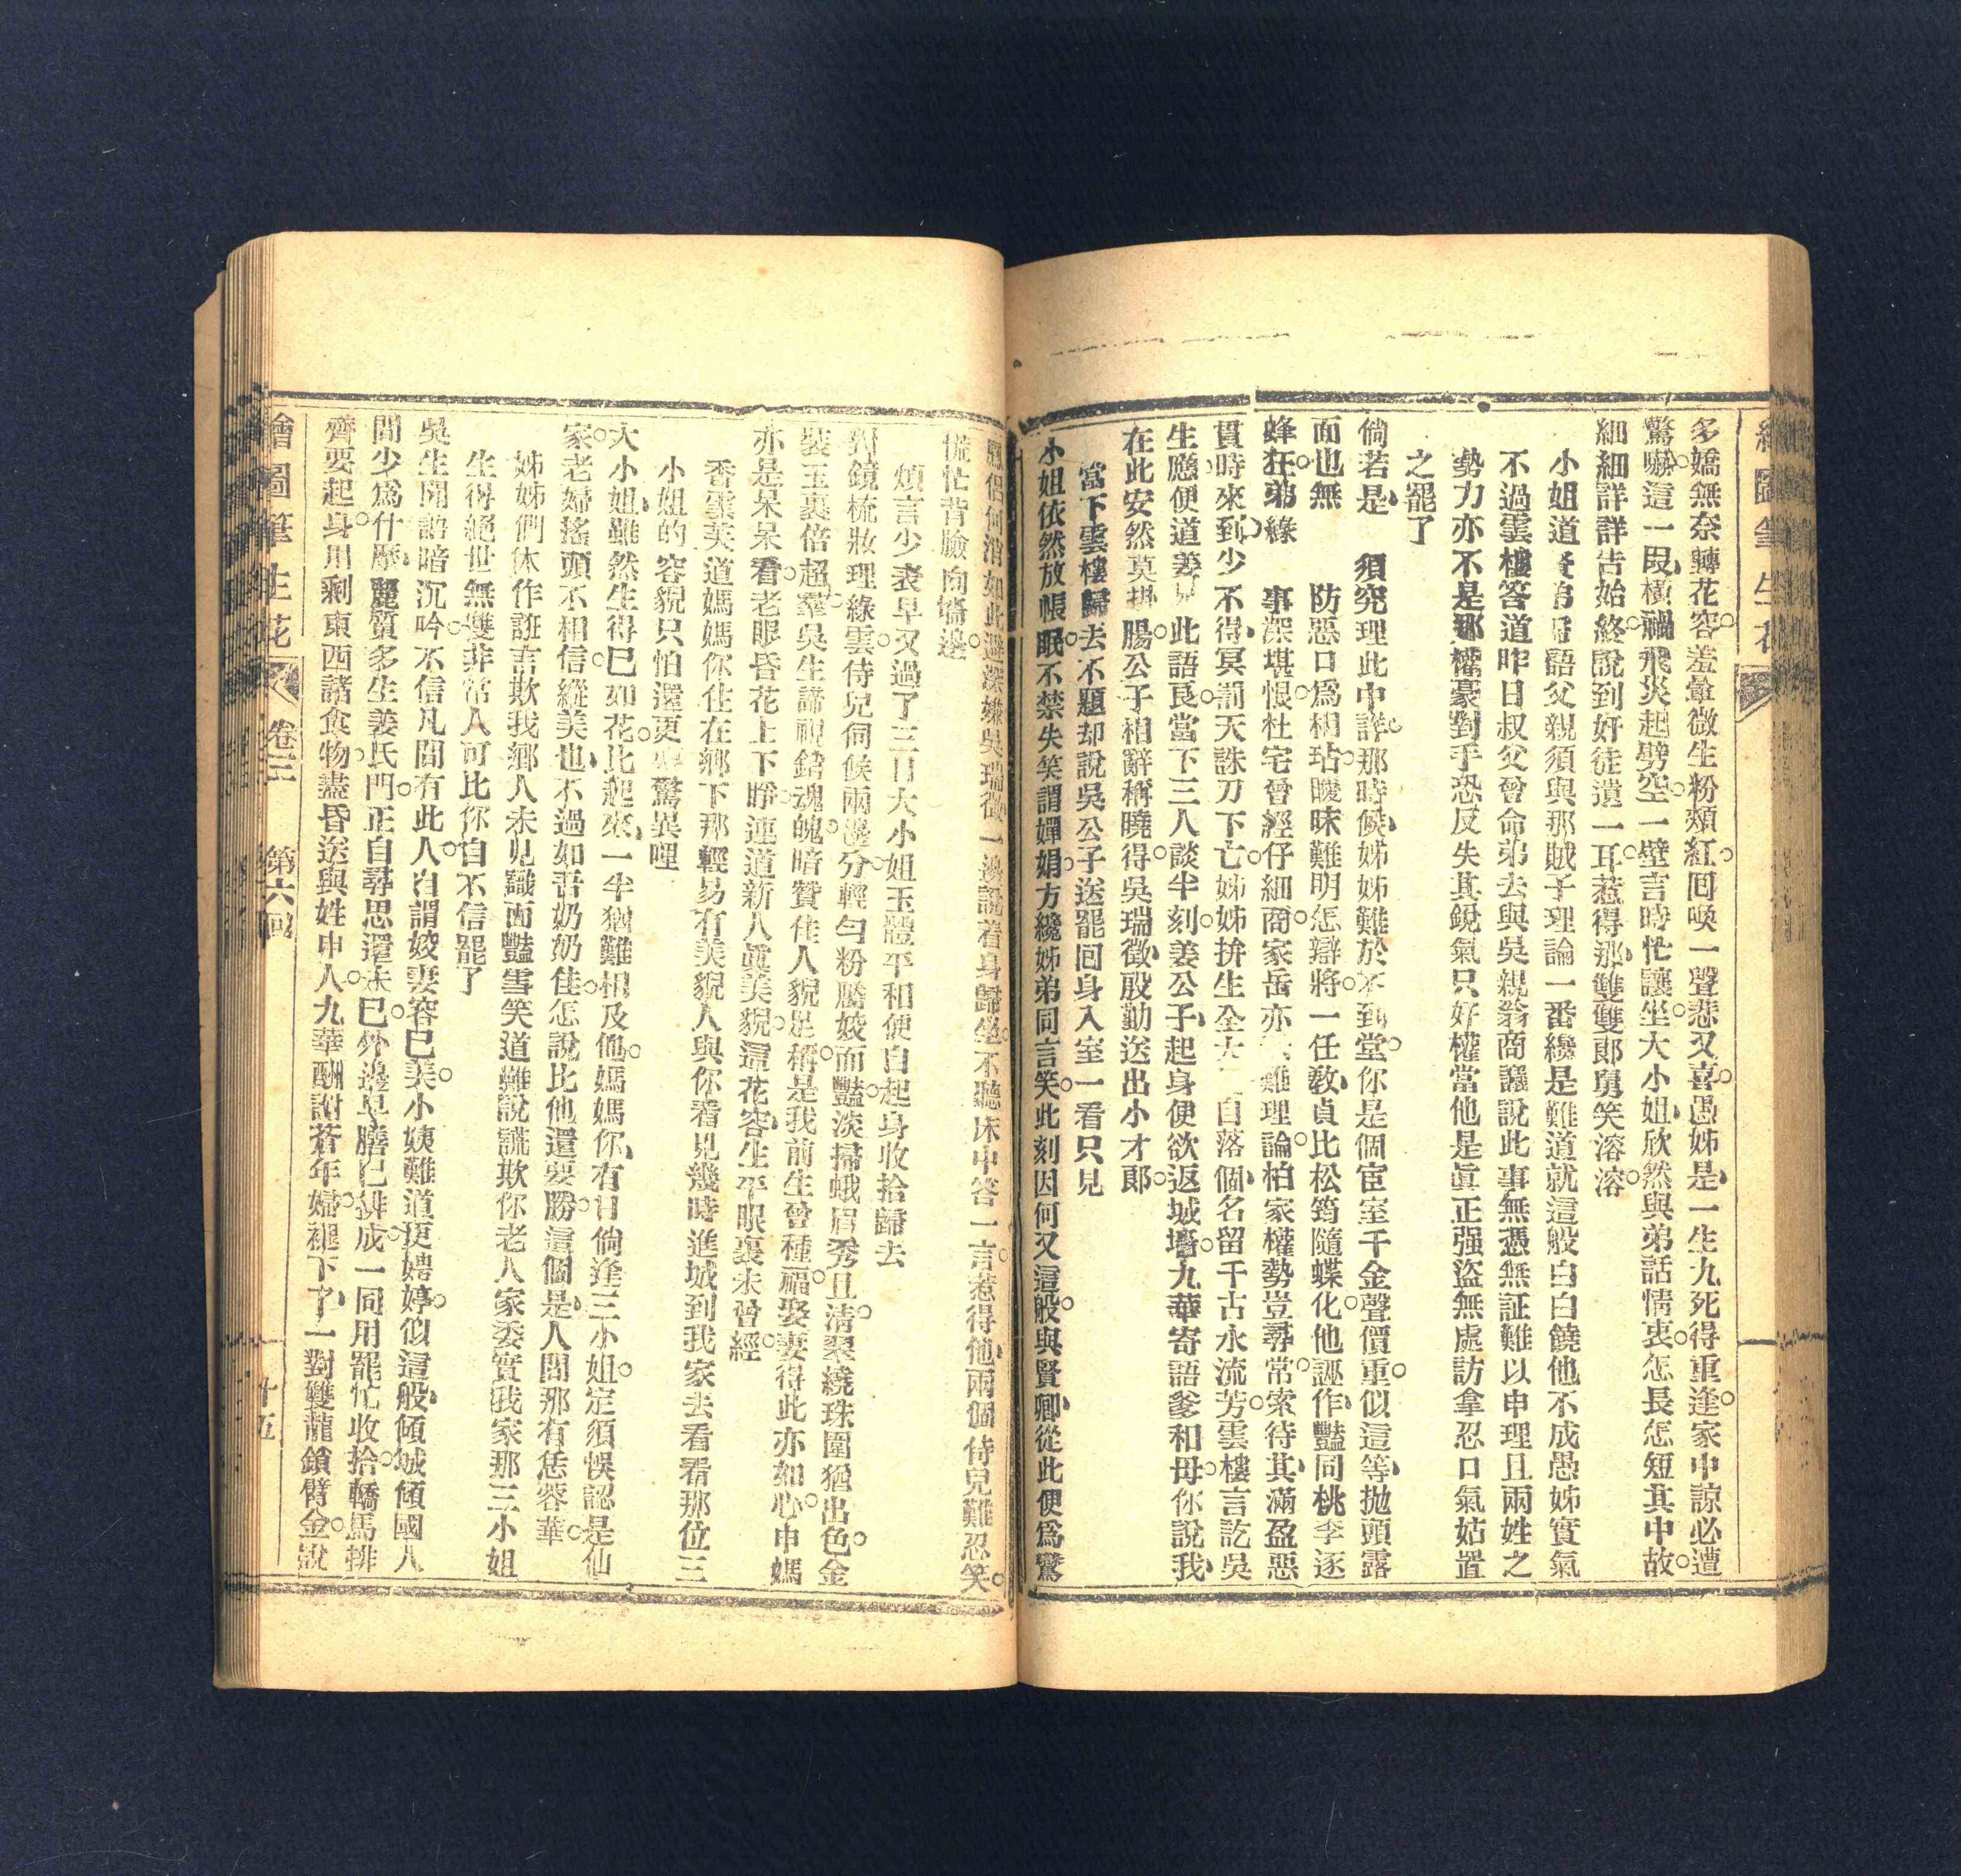 繪圖筆生花
多嬌無奈轉花容羞暈微生粉頰紅囘喚一聲悲又喜愚姊是一生九死得重逢家中諒必遭
驚嚇這一段橫禍飛災起劈空一壁言時忙讓坐大小姐欣然與弟話情衷怎長怎短其中故
細細詳詳告始終說到奸徒遺一耳惹得那雙雙郎舅笑溶溶
小姐道 弟 語父親須與那賊子理論一番纔是難道就這般白白饒他不成愚姊實氣
不過雲樓答道昨日叔父曾命弟去與吳親翁商議說此事無憑無証難以申理且兩姓之
勢力亦不是那權豪對手恐反失其銳氣只好權當他是眞正强盜無處訪拿忍口氣姑置
之罷了
倘若是 須究理此中詳那時候姊姊難於不到堂你是個宦室千金聲價重似這等抛頭露
面也無 防惡口爲相玷曖昧難明怎辯將一任敎貞比松筠隨蝶化他誣作豔同桃李逐
蜂狂弟緣 事深堪恨杜宅曾經仔細商家岳亦 難理論柏家權勢豈尋常索待其滿盈惡
貫時來到少不得冥罰天誅刀下亡姊姊拚生全大 自落個名留千古永流芳雲樓言訖吳
生應便道姜 此語良當下三人談半刻姜公子起身便欲返城墻九華寄語爹和母你說我
在此安然莫掛腸公子相辭稱曉得吳瑞徵殷勤送出小才郎
當下雲樓歸去不題却說吳公子送罷囘身入室一看只見
小姐依然放帳眠不禁失笑謂嬋娟方纔姊弟同言笑此刻因何又這般與賢卿從此便爲鴛
鳳侶何消如此避深嫌吳瑞徵一邊說着身歸坐不聽床中答一言惹得他兩個侍兒難忍笑
慌忙背臉向墻邊
煩言少表早又過了三日大小姐玉體平和便自起身收拾歸去
對鏡梳妝理綠雲侍兒伺候兩邊分輕勻粉膩姣面豔淡掃蛾眉秀且清翠繞珠圍猶出色金
裝玉裹倍超羣吳生諦視銷魂魄暗贊佳人貌足稱是我前生曾種福娶妻得此亦如心申媽
亦是呆呆看老眼昏花上下睜連道新人眞美貌這花容生平眼裏未曾經
香雲笑道媽媽你住在鄉下那輕易有美貌人與你看見幾時進城到我家去看看那位三
小姐的容貌只怕還更 驚異哩
大小姐雖然生得已如花比起來一半猶難相及他媽媽你有日倘逢三小姐定須悞認是仙
家老婦搖頭不相信縱美也不過如吾奶奶佳怎說比他還要勝這個是人間那有恁蓉華
姊姊們休作誑言欺我鄉人未見識面豔雪笑道難說謊欺你老人家委實我家那三小姐
生得絕世無雙非常人可比你自不信罷了
吳生聞語暗沉吟不信凡間有此人自謂姣妻容已美小姨難道更娉婷似這般傾城傾國人
間少爲什麽麗質多生姜氏門正自尋思還未已外邊早膳已排成一同用罷忙收拾轎馬排
齊要起身用剩東西諸食物盡昏送與姓申人九華酬謝蒼年婦褪下了一對雙龍鎖臂金說
繪圖筆生花 卷三 第六囘 十五